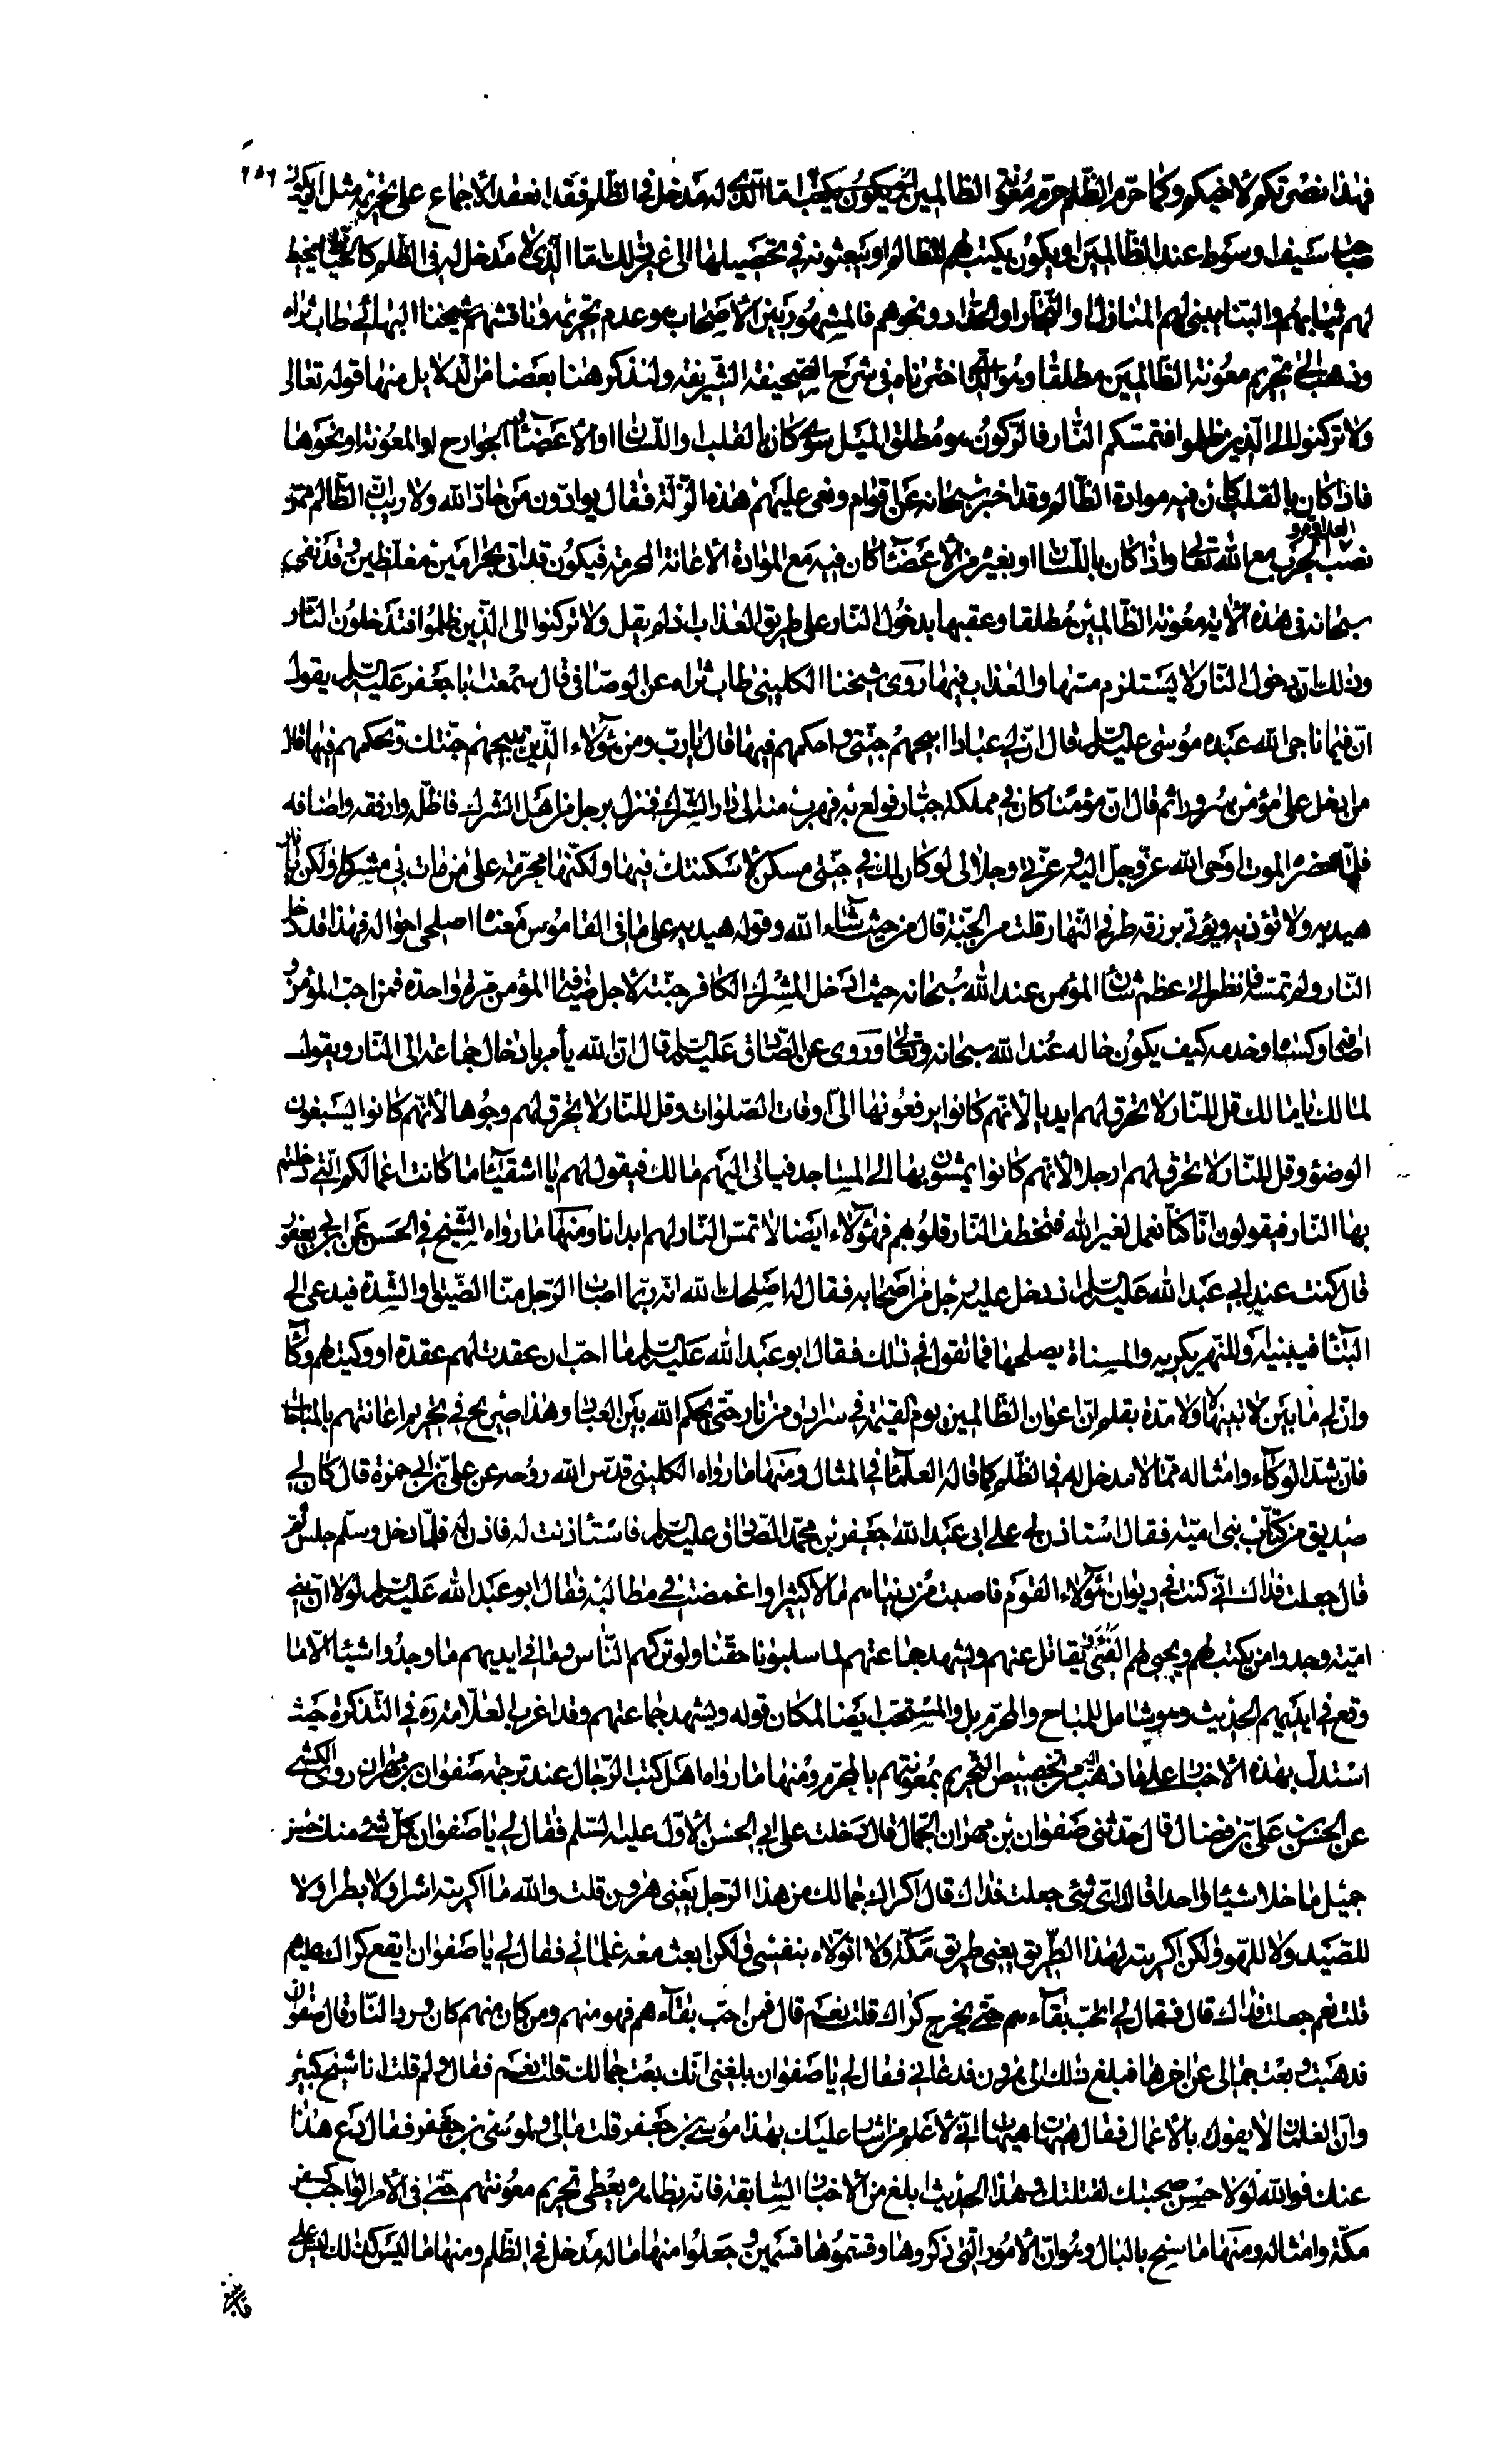 ٢٥٦
فهذا نصرتكم لأخيكم وكما حرّم الظلم حرّم معونة الظالمين اما الذي له مدخل في الظلم فقد انعقد الأجماع على تحريمه مثل ان يكون
صاحب سيف او سوط عند الظالمين او يكون يكتب لهم المظالم او يبعثونه في تحصيلها الى غير ذلك امّا الذي لا مدخل له في الظلم كالخياط يخيط
لهم ثيابهم والبنّا يبني لهم المنازل او النجّار او الحدّاد ونحوهم فالمشهور بين الأصحاب هو عدم تحريمه وناقشهم شيخنا البهائي طاب ثراه
وذهب الى تحريم معونة الظالمين مطلقا وهو الذي اخترناه في شرح الصحيفة الشريفة ولنذكر هنا بعضا من الدلايل منها قوله تعالى
ولا تركنوا الى الذين ظلموا فتمسكم النار فالركون هو مطلق الميل سواء كان بالقلب او اللسان او الأعضاء الجوارح او المعونة او نحوها
فاذا كان بالقلب كان فيه موادة الظالم وقد اخبر سبحانه عن اقوام ونعى عليهم هذه الزلة فقال يوادّون من حادّ الله ولا ريب انّ الظالم ممّن
نصب العداوة والحرب مع الله تعالى واذا كان باللسان او بغيره من الأعضاء كان فيه مع الموادة الأعانة المحرمة فيكون قد اتى بحرامين مغلظين وقد نهى
سبحانه في هذه الأية معونة الظالمين مطلقا وعقبها بدخول النار على طريق العذاب اذ لم يقل ولا تركنوا الى الذين ظلموا فتدخلون النار
وذلك انّ دخول النار لا يستلزم مسّها والعذاب فيها روى شيخنا الكليني طاب ثراه عن الوصّافي قال سمعت ابا جعفر عليه السلام يقول
انّ فيما ناجى الله عبده موسى عليه السلام قال انّ لي عبادا ابيحهم جنّتي واحكمهم فيها قال يا ربّ ومن هؤلاء الذين تبيحهم جنّتك وتحكمهم فيها قال
من ادخل على مؤمن سرورا ثم قال انّ مؤمنا كان في مملكة جبّار فولع به فهرب منه الى دار الشرك فنزل برجل من اهل الشرك فاظلّه وارفقه واضافه
فلمّا حضره الموت اوحى الله عزّ وجلّ اليه وعزّتي وجلالي لو كان لك في جنّتي مسكن لأسكنتك فيها ولكنّها محرّمة على من مات بي مشركا ولكن يا نار
هيديه ولا تؤذيه ويؤتى برزقه طرفي النهار قلت من الجنّة قال من حيث شاء الله وقوله هيديه على ما في القاموس معناه اصلحي احواله فهذا قد دخل
النار ولم تمسّه فانظر الى عظم شأن المؤمن عند الله سبحانه حيث ادخل المشرك الكافر جنّته لأجل ضيافة المؤمن مرّة واحدة فمن احبّ المؤمن
اضافه او كساه او خدمه كيف يكون حاله عند الله سبحانه وتعالى وروى عن الصادق عليه السلام قال انّ الله يأمر بادخال جماعة الى النار ويقول
لمالك يا مالك قل للنار لا تحرق لهم ايديا لأنّهم كانوا يرفعونها اليّ اوقات الصلوات وقل للنار لا تحرق لهم وجوها لأنهم كانوا يسبغون
الوضوء وقل للنار لا تحرق لهم ارجلا لأنّهم كانوا يمشون بها الى المساجد فياتى اليهم مالك فيقول لهم يا اشقياء ما كانت اعمالكم التي دخلتم
بها النار فيقولون انّا كنّا نعمل لغير الله فتخطف النار قلوبهم فهؤلاء ايضا لا تمسّ النار لهم ابدانا ومنها ما رواه الشيخ في الحسن عن ابن ابي يعفور
قال كنت عند ابي عبد الله عليه السلام اذ دخل عليه رجل من اصحابه فقال له اصلحك الله انّه ربّما اصاب الرجل منّا الضيق والشدة فيدعى الى
البناء فيبنيه او للنهر يكريه او المسناة يصلحها فما تقول في ذلك فقال ابو عبد الله عليه السلام ما احبّ ان عقدت لهم عقدة او وكيت لهم وكاء
وانّ لي ما بين لابتيها ولا مدة بقلم انّ اعوان الظالمين يوم القيمة في سرادق من نار حتى يحكم الله بين العباد وهذا صريح في تحريم اعانتهم بالمباحات
فانّ شدّ الوكاء وامثاله ممّا لا مدخل له في الظلم كما قاله العلماء في المثال ومنها ما رواه الكليني قدّس الله روحه عن علي بن ابي حمزة قال كان لي
صديق من كتّاب بني اميّة فقال استاذن لي على ابي عبد الله جعفر بن محمّد الصادق عليه السلام فاستأذنت له فاذن له فلمّا دخل وسلّم جلس ثم
قال جعلت فداك انّي كنت في ديوان هؤلاء القوم فاصبت من دنياهم مالا كثيرا واغمضت في مطالبه فقال ابو عبد الله عليه السلام لولا انّ بني
اميّة وجدوا من يكتب لهم ويجبي لهم الفيئ ويقاتل عنهم ويشهد جماعتهم لما سلبونا حقّنا ولو تركهم الناس وما في ايديهم ما وجدوا شيئا الّا ما
وقع في ايديهم الحديث وهو شامل للمباح والمحرّم بل والمستحبّ ايضا لمكان قوله ويشهد جماعتهم وقد اغرب العلّامة ره في التذكرة حيث
استدل بهذه الأخبار على ما ذهب اليه من تخصيص التحريم بمعونتهم بالمحرم ومنها ما رواه اهل كتب الرجال عند ترجمة صفوان بن مهران روى الكشّي
عن الحسن بن علي بن فضال قال حدّثني صفوان بن مهران الجمال قال دخلت على ابي الحسن الأوّل عليه السلم فقال لي يا صفوان كلّ شئ منك حسن
جميل ما خلا شيئا واحدا قال ايّ شئ جعلت فداك قال اكراك جمالك من هذا الرجل يعني هرون قلت والله ما اكريته اشرا ولا بطرا ولا
للصيد ولا للهو ولكن اكريته لهذا الطريق يعني طريق مكّة ولا اتولّاه بنفسي ولكن ابعث معه غلماني فقال لي يا صفوان ايقع كراك عليهم
قلت نعم جعلت فداك قال فقال لي اتحبّ بقاءهم حتّى يخرج كراك قلت نعم قال فمن احبّ بقاءهم فهو منهم ومن كان منهم كان ورد النار قال صفوان
فذهبت وبعت جمالي عن اخرها فبلغ ذلك الى هرون فدعاني فقال لي يا صفوان بلغني انّك بعت جمالك قلت نعم فقال ولم قلت انا شيخ كبير
وانّ الغلمان لا يفون بالأعمال فقال هيهات هيهات انّي لأعلم من اشار عليك بهذا موسى بن جعفر قلت مالي ولموسى بن جعفر فقال دع هذا
عنك فوالله لولا حسن صحبتك لقتلتك وهذا الحديث ابلغ من الأخبار السابقة فانّه بظاهره يعطى تحريم معونتهم حتّى في الأمر الواجب كسفر
مكّة وامثاله ومنها ما سنح بالبال وهو انّ الأمور التي ذكروها وقسّموها قسمين وجعلوا منها ما له مدخل في الظلم ومنها ما ليس كذلك ليس على